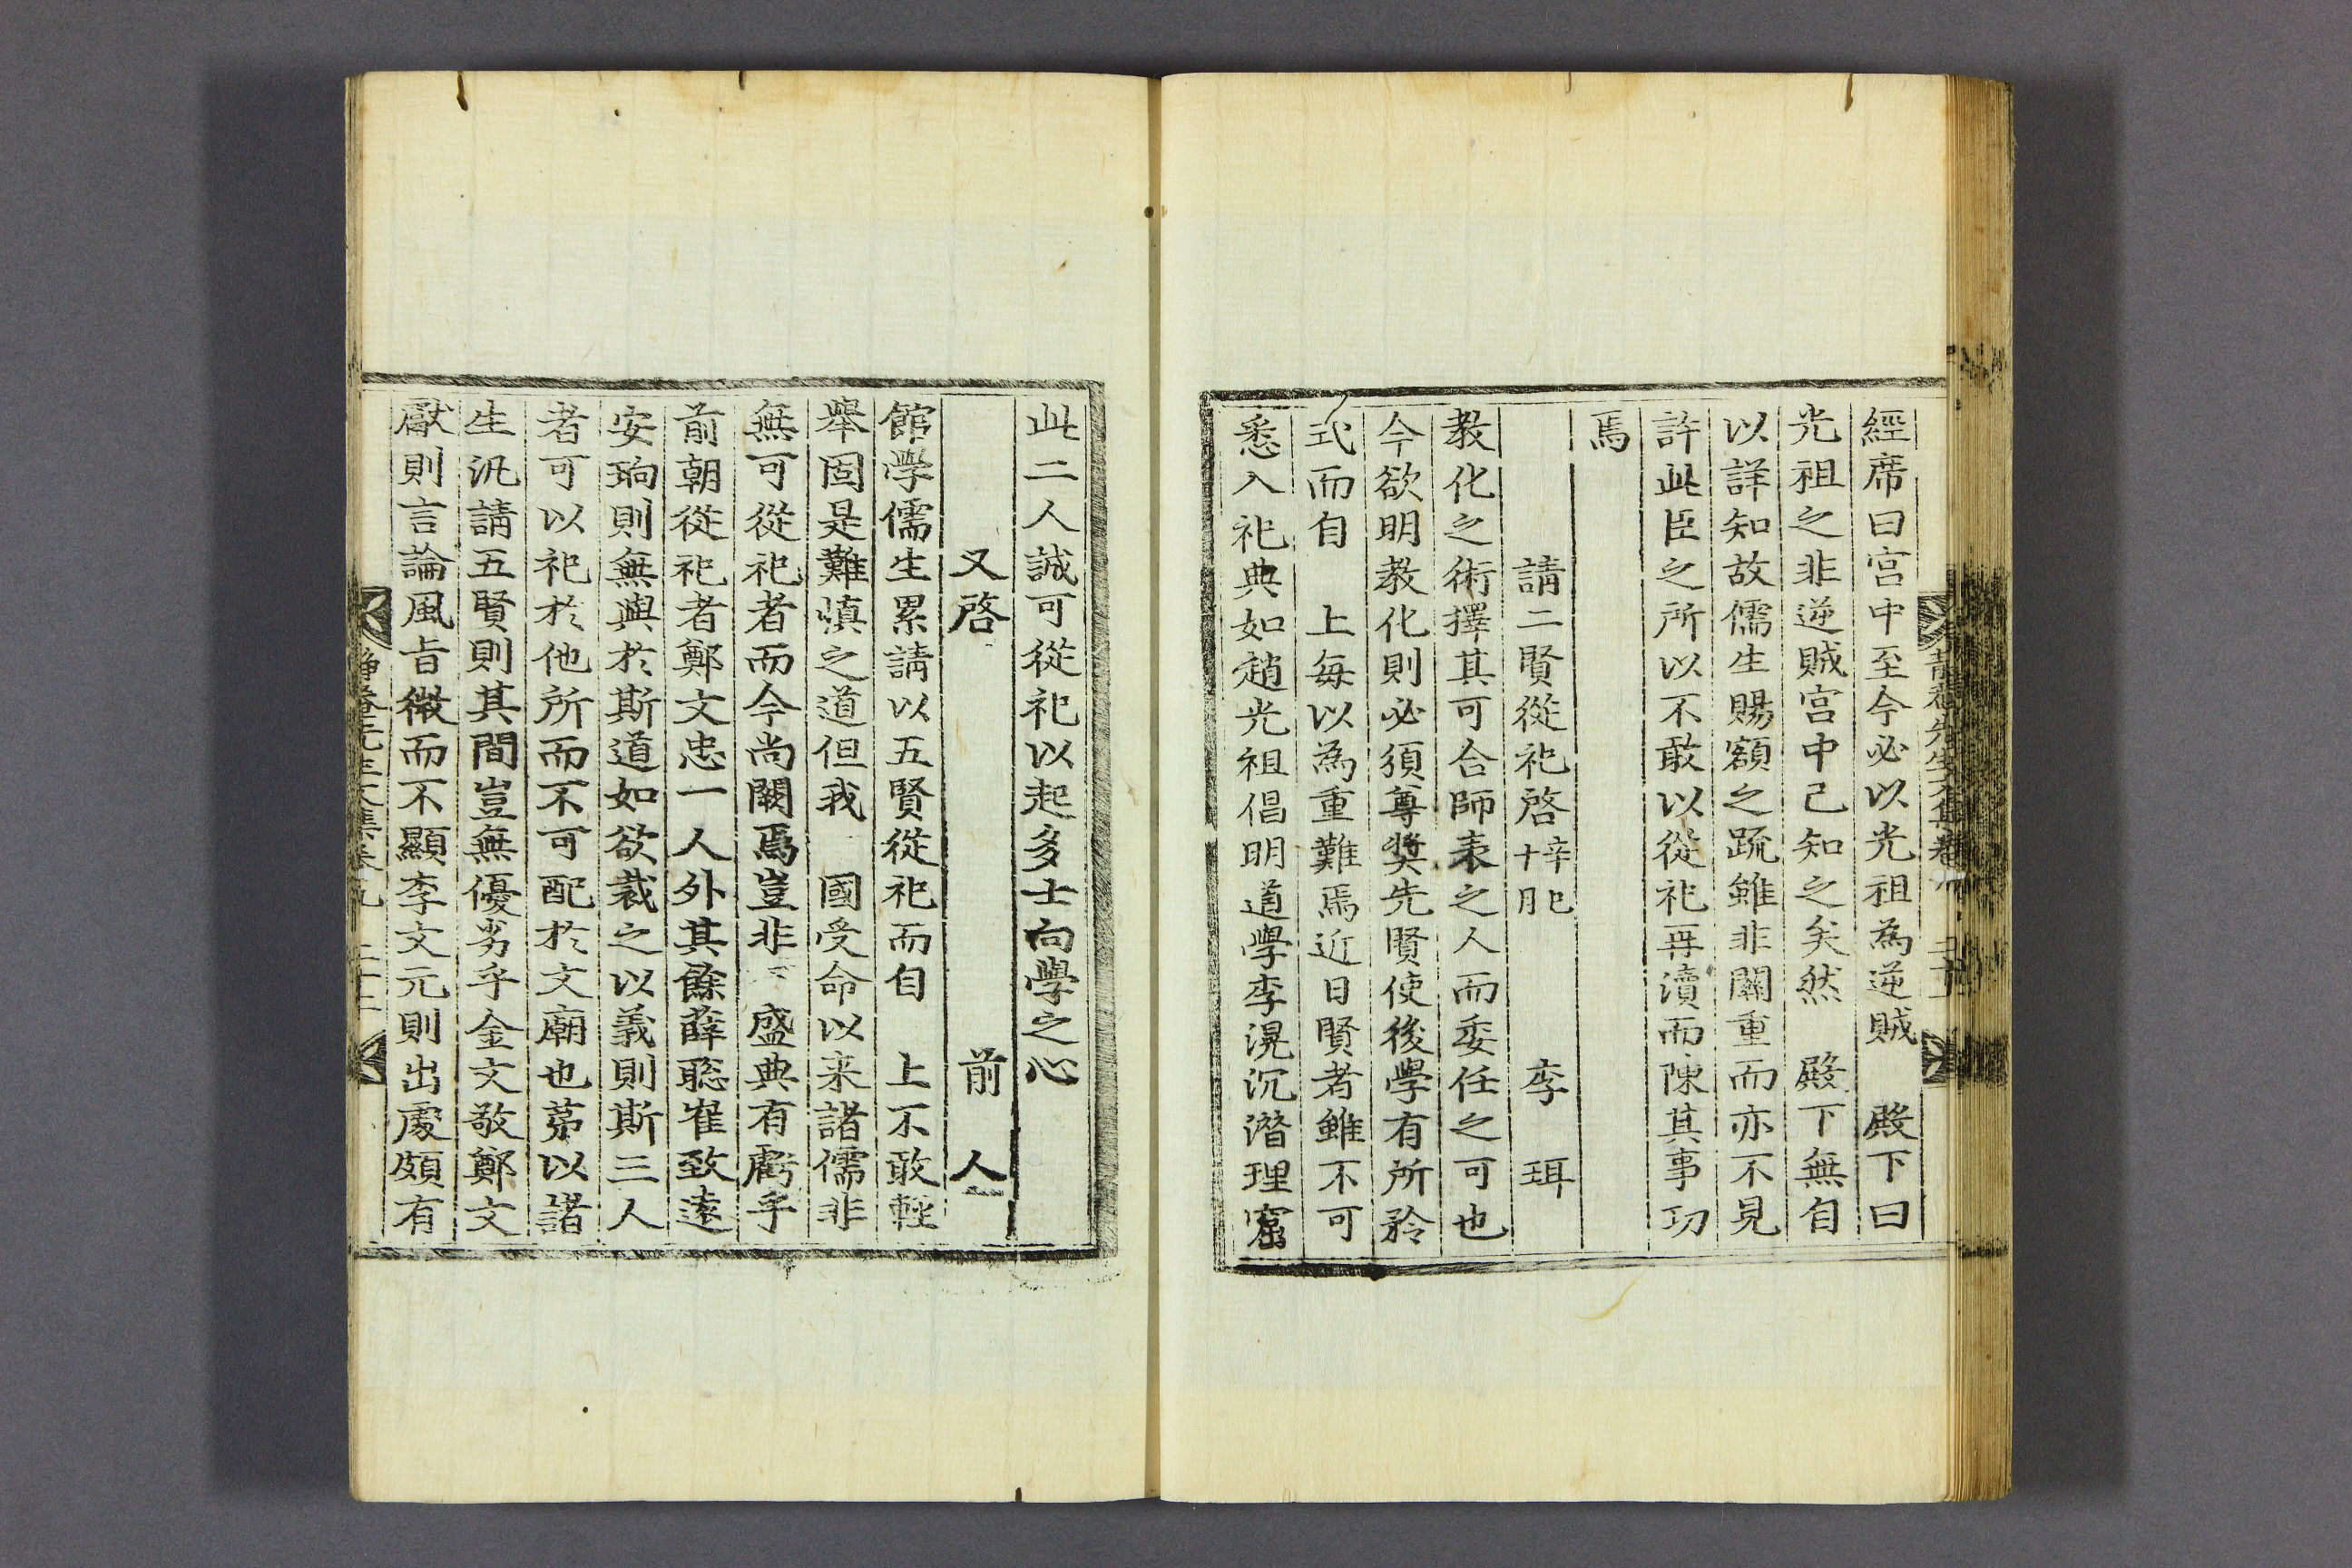 經席曰宮中至今必以光祖為逆賊 殿下曰
光祖之非逆賊宮中已知之矣然 殿下無自
以詳知故儒生賜額之疏雖非關重而亦不見
許此臣之所以不敢以從祀再瀆而陳其事功
焉
請二賢從祀啓 辛巳十月 李 珥
教化之術擇其可合師表之人而委任之可也
今欲明教化則必須尊奬先賢使後學有所矜
式而自 上每以為重難焉近日賢者雖不可
悉入祀典如趙光祖倡明道學李滉沉潛理窟
此二人誠可從祀以起多士向學之心
又啓 前 人
館學儒生累請以五賢從祀而自 上不敢輕
舉固是難愼之道但我 國受命以来諸儒非
無可從祀者而今尚闕焉豈非 盛典有虧乎
前朝從祀者鄭文忠一人外其餘薛聡崔致遠
安珦則無與於斯道如欲裁之以義則斯三人
者可以祀於他所而不可配於文廟也苐以諸
生汎請五賢則其間豈無優劣乎金文敬鄭文
獻則言論風旨微而不顯李文元則出處頗有
静菴先生文集卷九